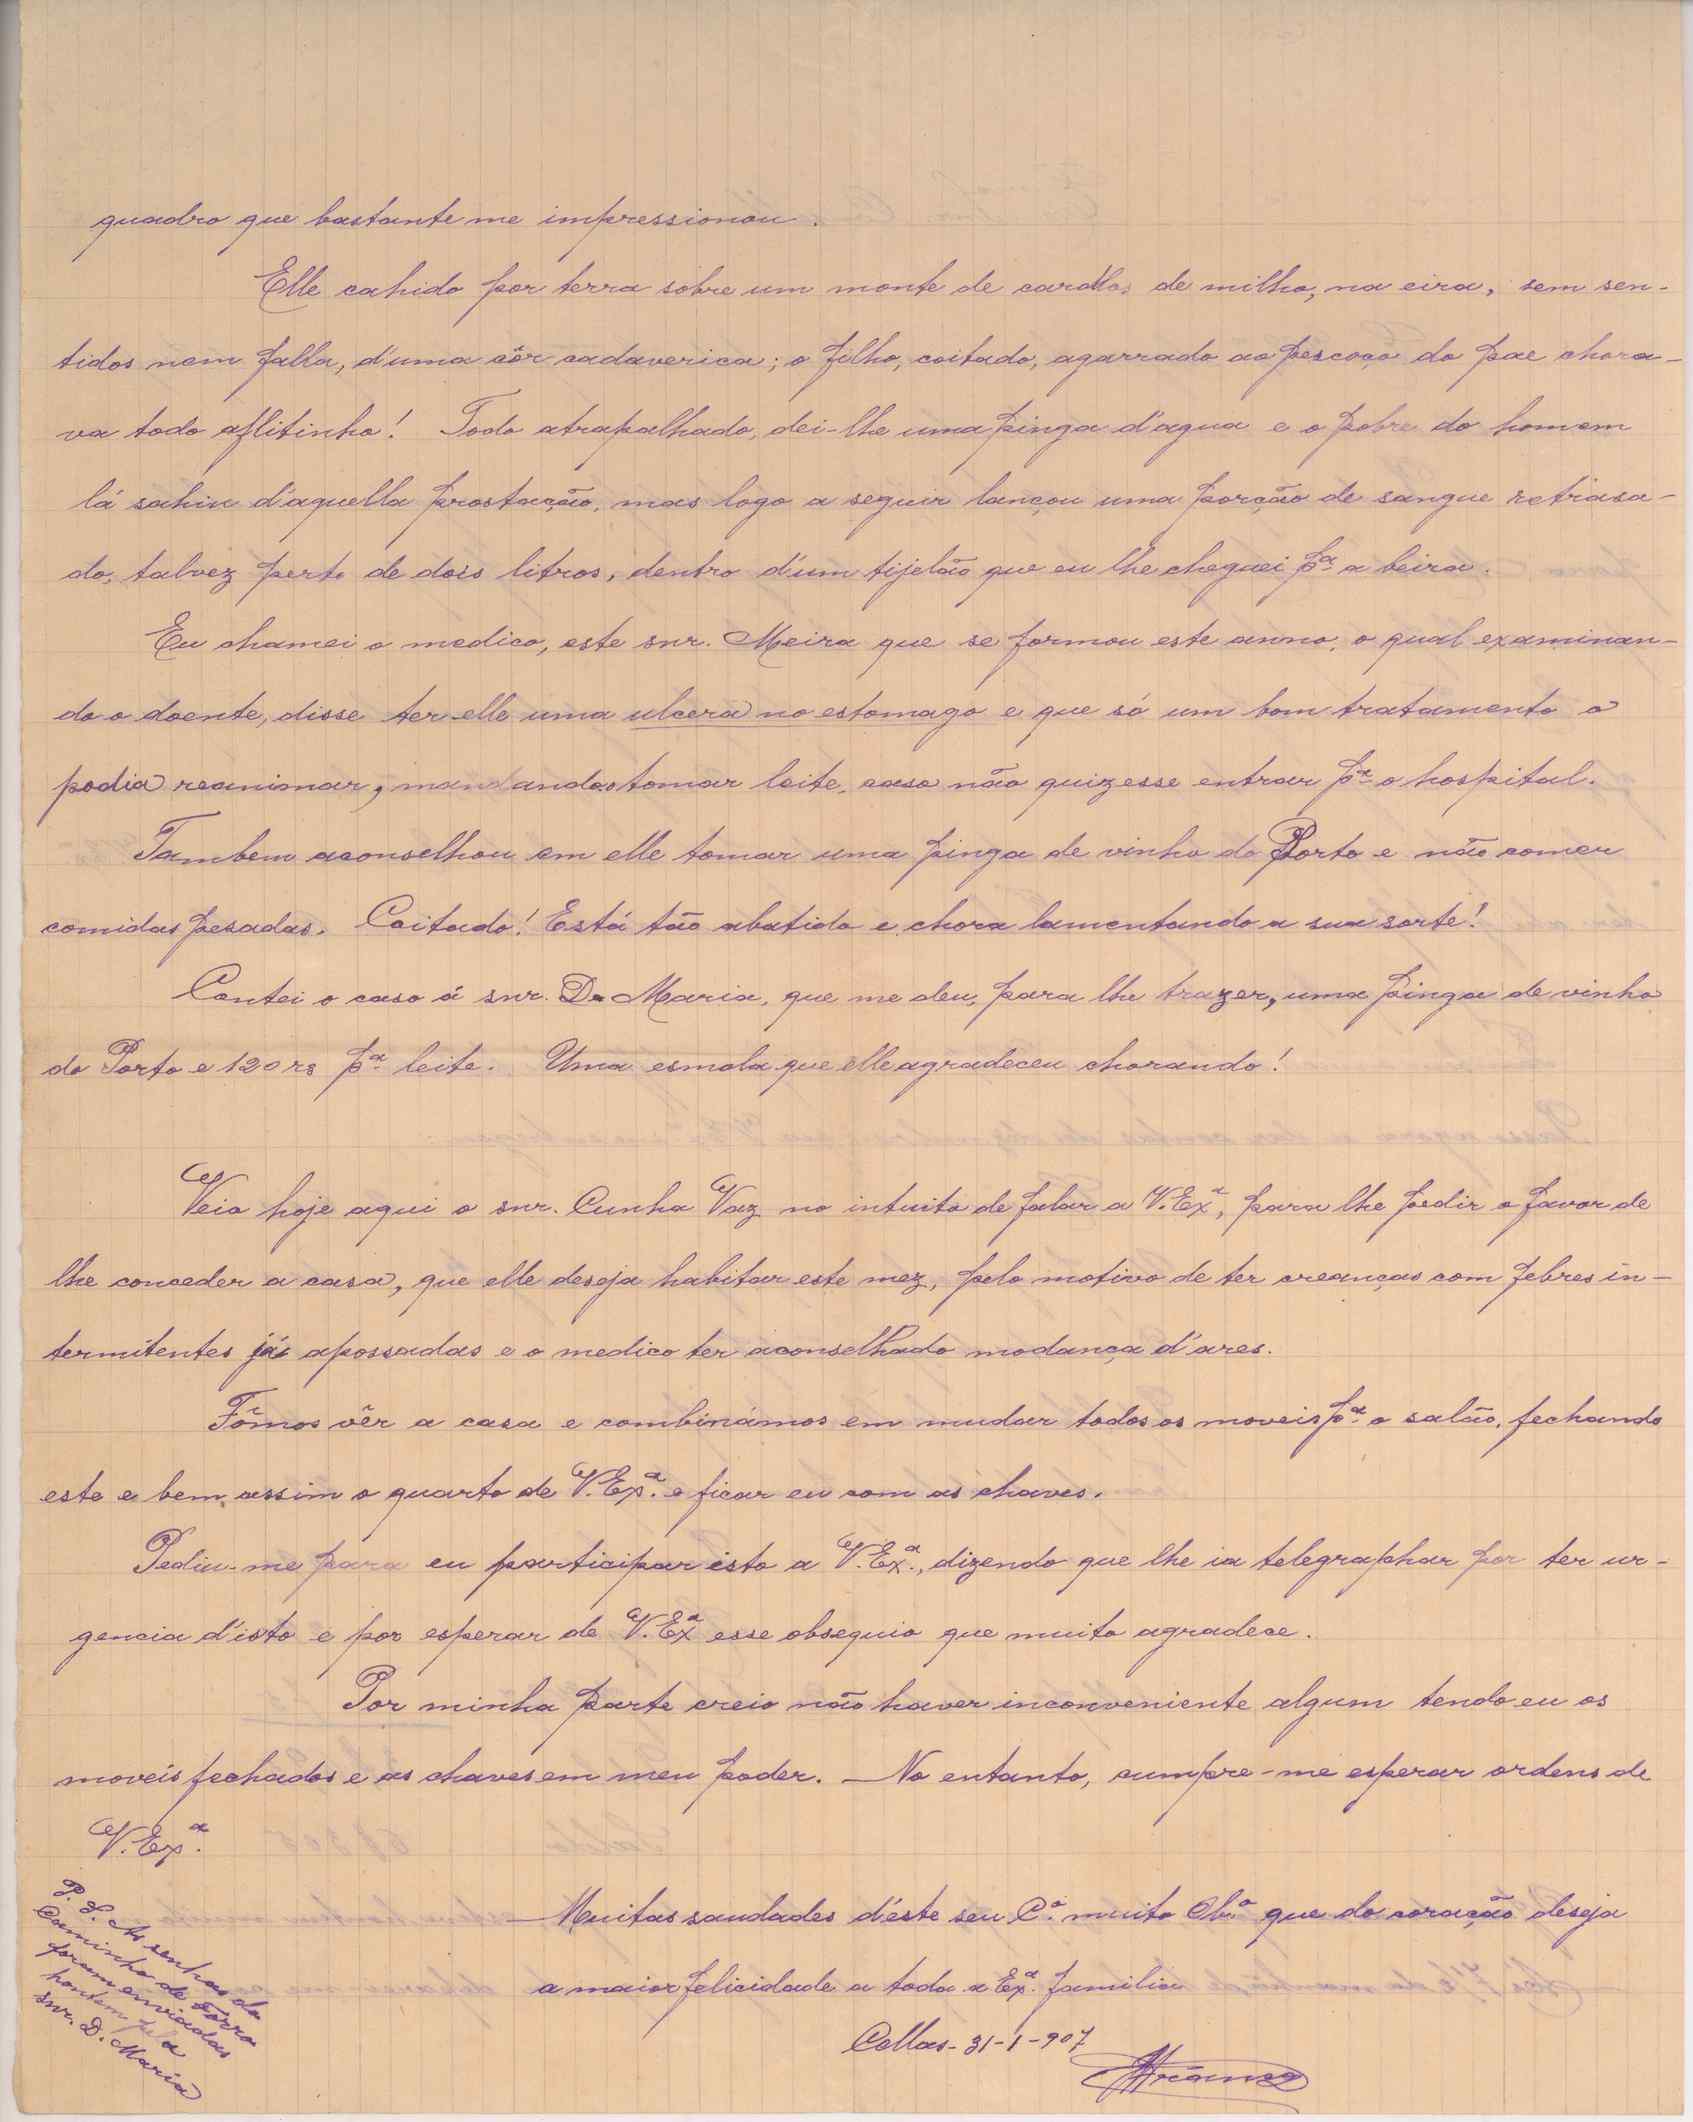 quadro que bastante me impressionou.
Elle cahido por terra sobre um monte de carollos de milho, na eira, sem sen-
tidos nem falla, d'uma côr cadaverica; o filho, coitado, agarrado ao pescoço do pae chora-
va todo aflitinho! Todo atrapalhado, dei-lhe uma pinga d'agua e o pobre do homem
lá sahiu d'aquella prostação, mas logo a seguir lançou uma porção de sangue retrasa-
do, talvez perto de dois litros, dentro d'um tijelão que eu lhe cheguei pª a beira.
Eu chamei o medico, este snr. Meira que se formou este anno, o qual examinan-
do o doente, disse ter elle uma ulcera no estomago e que só um bom tratamento o
podia reanimar, mandando-o tomar leite, caso não quizesse entrar pª o hospital.
Tambem aconselhou em elle tomar uma pinga de vinho do Porto e não comer
comidas pesadas. Coitado! Está tão abatido e chora lamentando a sua sorte!
Contei o caso á snr. D. Maria, que me deu, para lhe trazer, uma pinga de vinho
do Porto e 120 rs pª leite. Uma esmola que elle agradeceu chorando!
Veio hoje aqui o snr. Cunha Vaz no intuito de falar a V. Exª, para lhe pedir o favor de
lhe conceder a casa, que elle deseja habitar este mez, pelo motivo de ter creanças com febres in-
termitentes já apossadas e o medico ter aconselhado modança d'ares.
Fômos vêr a casa e combinámos em mudar todos os moveis pª o salão, fechando
este e bem assim o quarto de V. Exª. e ficar eu com as chaves.
Pediu-me para eu participar isto a V. Exª., dizendo que lhe ia telegraphar por ter ur-
gencia d'isto e por esperar de V. Exª esse obsequio que muito agradece.
Por minha parte creio não haver inconveniente algum tendo eu os
moveis fechados e as chaves em meu poder. — No entanto, cumpre-me esperar ordens de
V. Exª.
— Muitas saudades d'este seu Cº. muito Obº. que do coração deseja
a maior felicidade a toda a Exª. familia
Cellas - 31-1-907
P. S. As senhas do
Caminho de Ferro
foram enviadas
hontem pela
snr. D. Maria